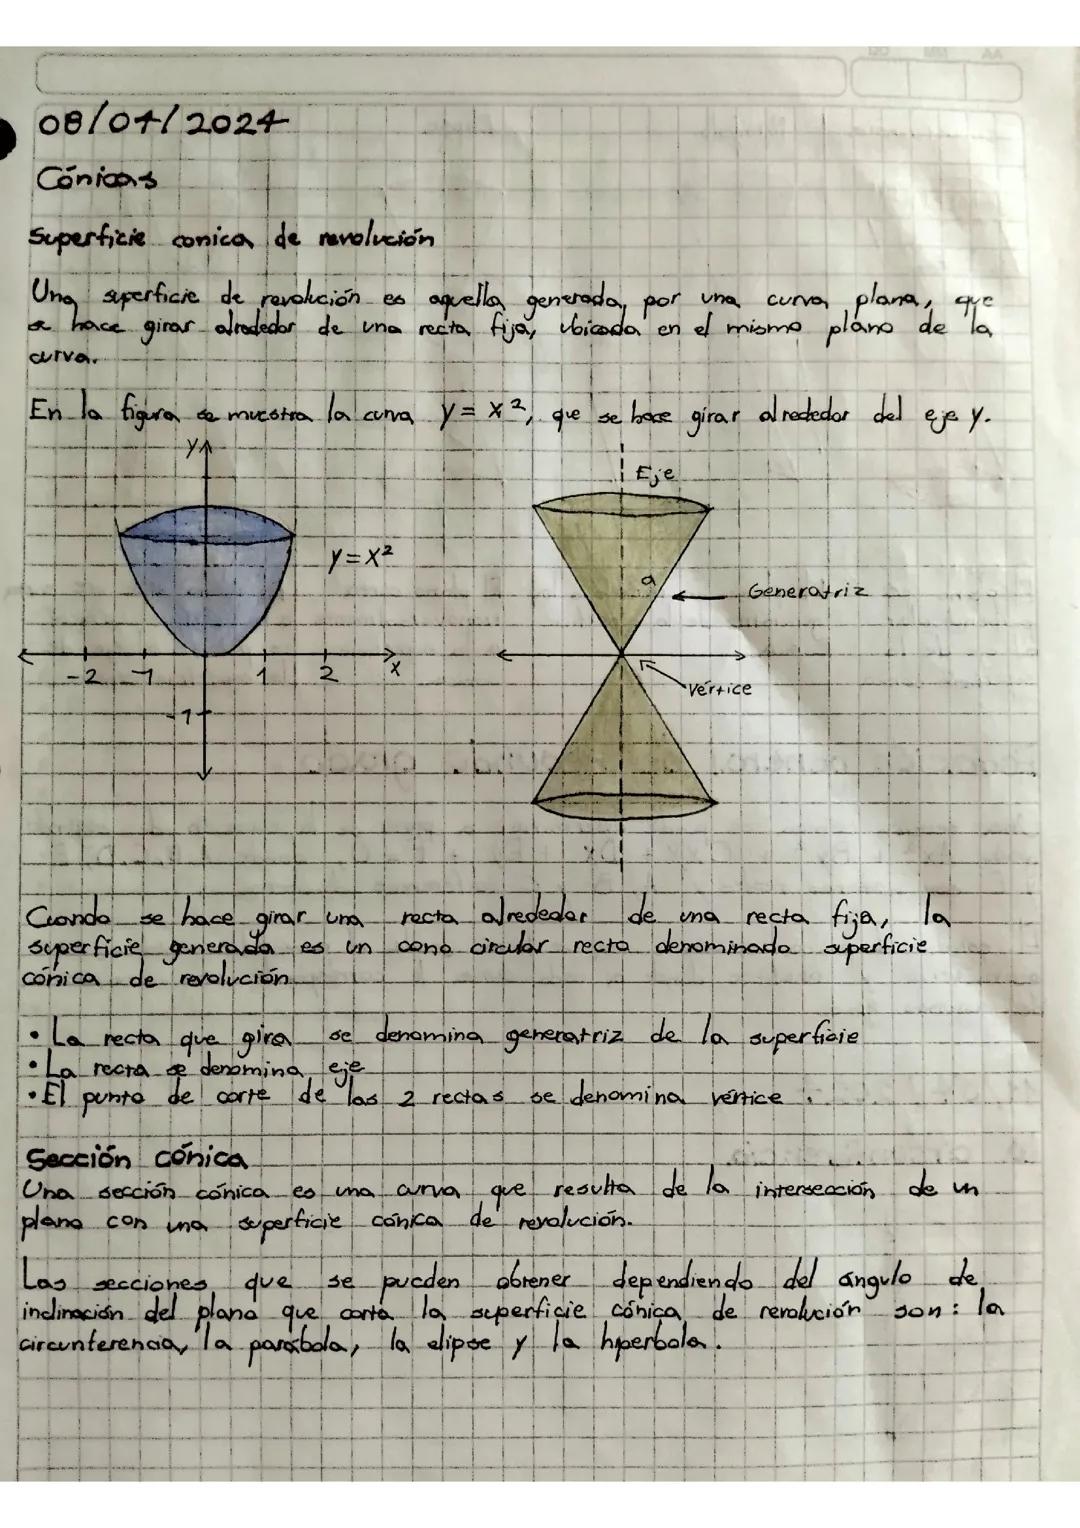 08/04/2024
Cónicas
Superficie conica de revolución
Una superficie de revolución es aquella generada, por una curva plana, que
se hace girar alrededor de una recta fija, ubicada en el mismo plano de la
curva.
En la figura se muestra la curva y = x², que se hace girar alrededor del eje y.
y
Eje
y = x²
a
Generatriz
-2 -1 1 2 x
Vértice
-1
Cuando se hace girar una recta alrededor de una recta fija, la
superficie generada es un cono circular recto denominado superficie
cónica de revolución
• La recta que gira se denomina generatriz de la superficie
• La recta se denomina eje
• El punto de corte de las 2 rectas se denomina vértice.
Sección cónica
Una sección cónica es una curva que resulta de la intersección de un
plano con una superficie cónica de revolución.
Las secciones que se pueden obtener dependiendo del ángulo de
inclinación del plano que corta la superficie cónica de revolución son: la
circunferencia, la parábola, la elipse y la hiperbola.